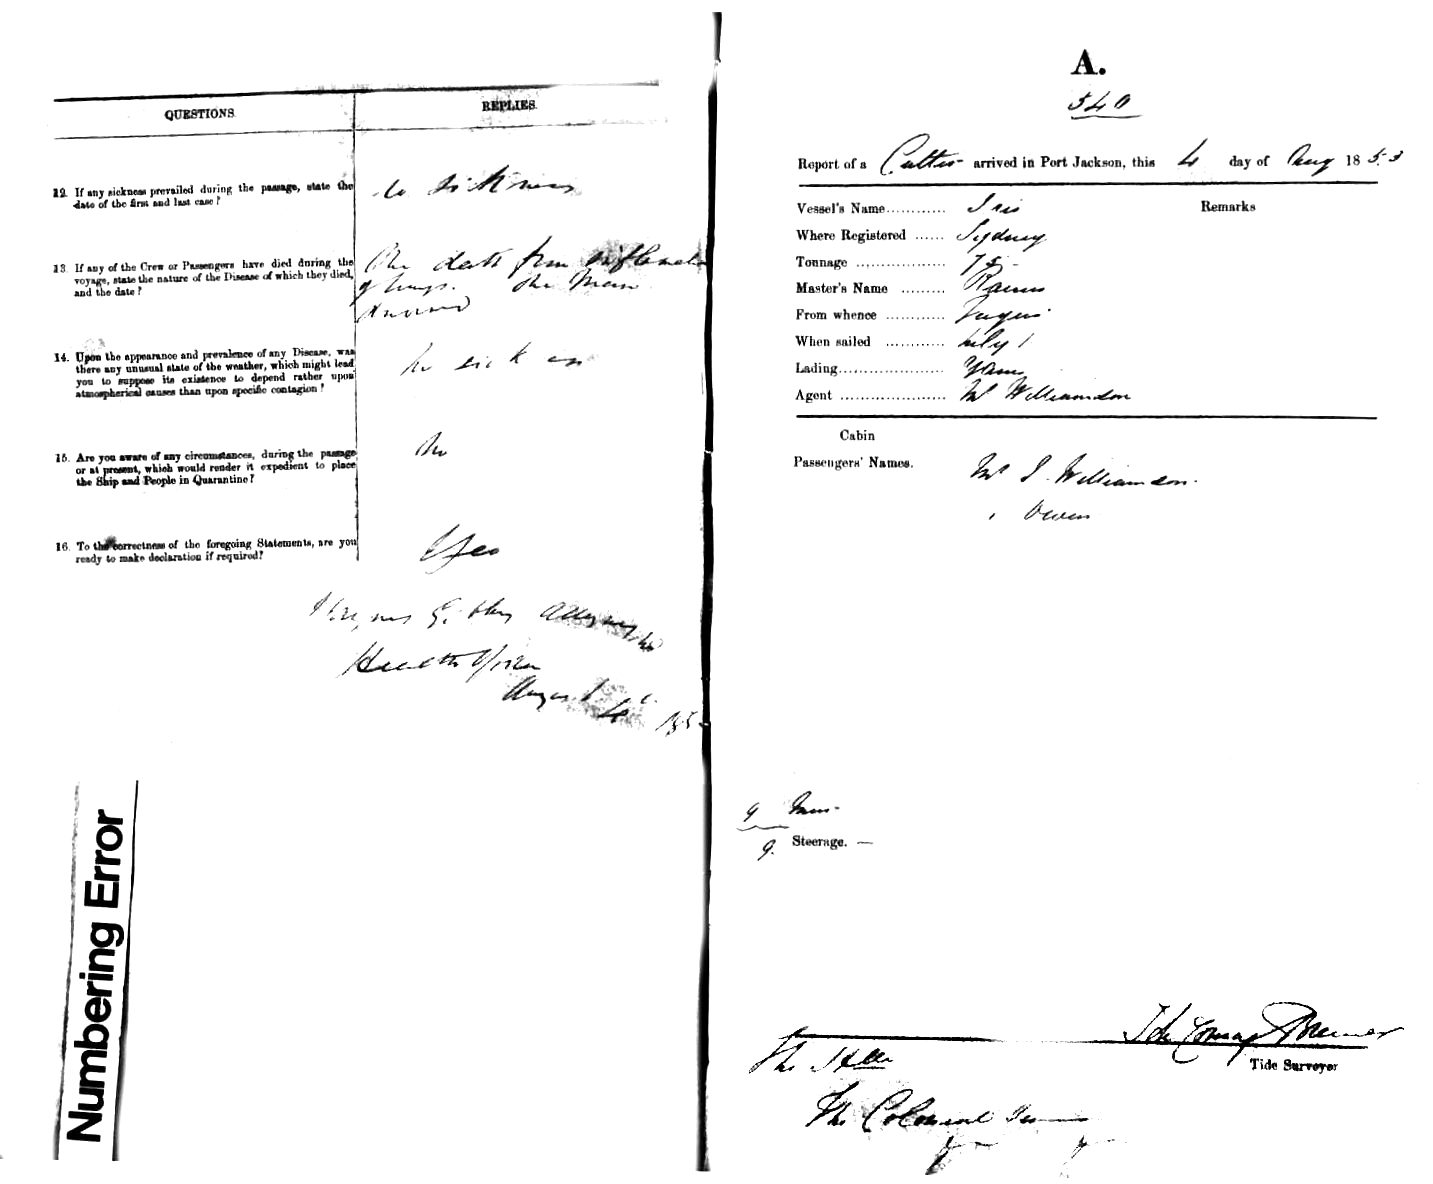 QUESTIONS.
REPLIES.
12. If any sickness prevailed during the passage, state the
date of the first and last case?
No sickness
13. If any of the Crew or Passengers have died during the
voyage, state the nature of the Disease of which they died,
and the date?
One death from
of lungs. The
14. Upon the appearance and prevalence of any Disease, was
there any unusual state of the weather, which might lead
you to suppose its existence to depend rather upon
atmospherical causes than upon specific contagion?
No sick
15. Are you aware of any circumstances, during the passage
or at present, which would render it expedient to place
the Ship and People in Quarantine?
No
16. To the correctness of the foregoing Statements, are you
ready to make declaration if required?
Yes
Health Officer
August 4 185
Numbering Error
A.
540
Report of a Cutter arrived in Port Jackson, this 4 day of Aug 1853
Vessel's Name............ Iris
Remarks
Where Registered ...... Sydney
Tonnage .................. 75
Master's Name .........
From whence ............
When sailed ............ July 1
Lading..................... Yams
Agent ..................... Mr Williamson
Cabin
Passengers' Names.
Mr J. Williamson.
" Owen
9 Men
9. Steerage. —
Tide Surveyor
The Hon
The Colonial